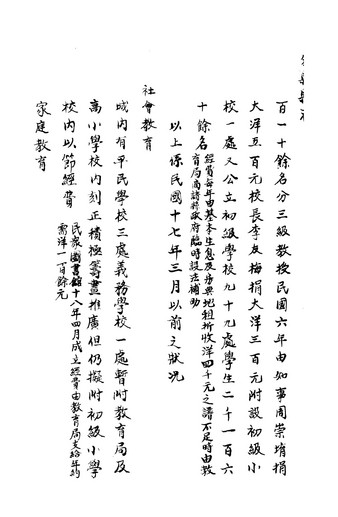 百一十餘名分三級教授民國六年由知事周崇堉捐
大洋五百元校長李友梅捐大洋三百元附設初級小
校一處又公立初級學校九十九處學生二千一百六
十餘名經費每年由基本生息及房與地租折收洋四千元之譜不足時由教
育局商請縣政府臨時設法補助
以上係民國十七年三月以前之狀況
社會教育
城內有平民學校三處義務學校一處暫附教育局及
高小學校內刻正積極籌畫推廣但仍擬附初級小學
校內以節經費民眾圖書館十八年四月成立經費由教育局支給年約
需洋一百餘元
家庭教育